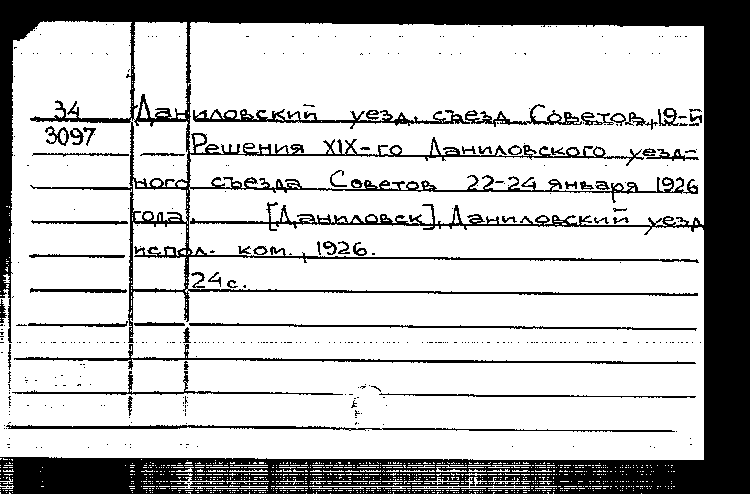 34 Даниловский уезд. съезд Советов, 19-й
3097 Решения XIX-го Даниловского уезд-
ного съезда Советов 22-24 января 1926
года. [Даниловск], Даниловский уезд
испол. ком., 1926.
24 с.